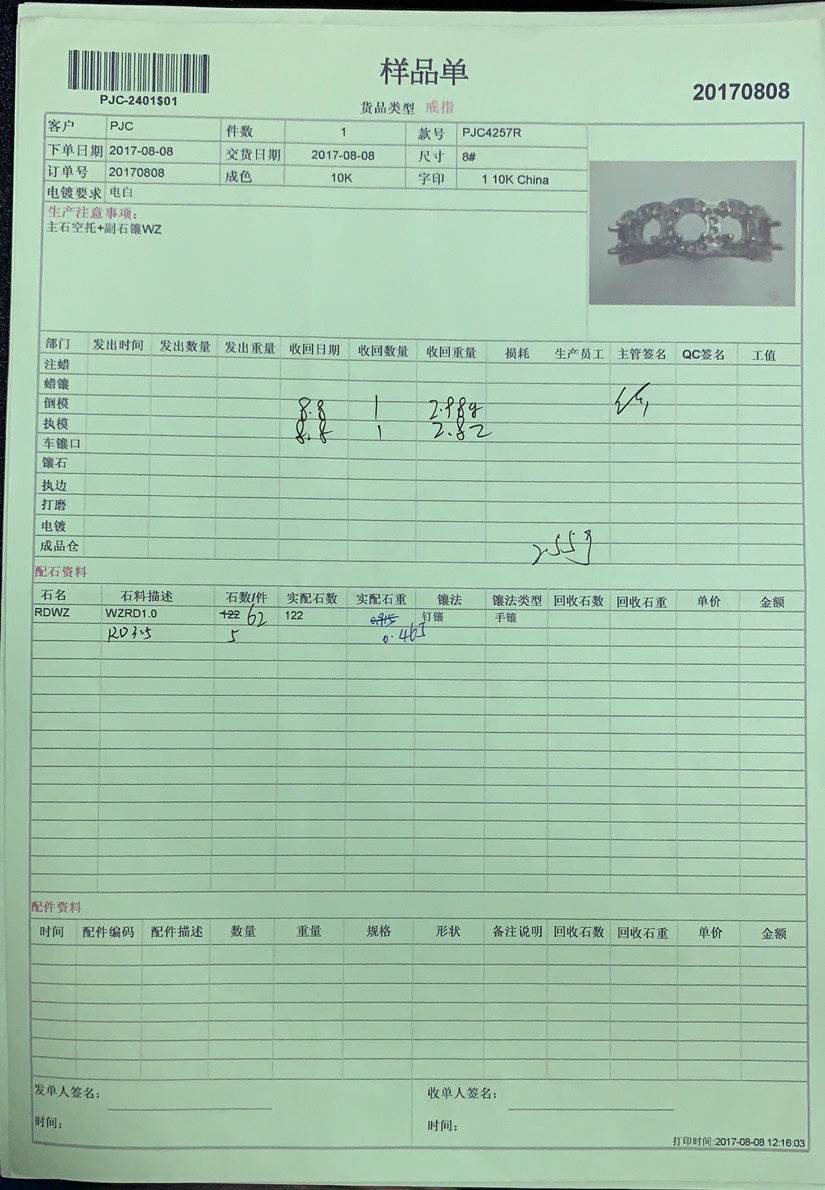 样品单
PJC-2401$01
20170808
货品类型 戒指
客户 PJC 件数 1 款号 PJC4257R
下单日期 2017-08-08 交货日期 2017-08-08 尺寸 8#
订单号 20170808 成色 10K 字印 1 10K China
电镀要求 电白
生产注意事项:
主石空托+副石镶WZ
部门 发出时间 发出数量 发出重量 收回日期 收回数量 收回重量 损耗 生产员工 主管签名 QC签名 工值
注蜡
蜡镶
倒模 8.8 1
执模 8.8 1 2.82
车镶口
镶石
执边
打磨
电镀
成品仓
配石资料
石名 石料描述 石数/件 实配石数 实配石重 镶法 镶法类型 回收石数 回收石重 单价 金额
RDWZ WZRD1.0 122 62 122 钉镶 手镶
RD3.5 5 0.465
配件资料
时间 配件编码 配件描述 数量 重量 规格 形状 备注说明 回收石数 回收石重 单价 金额
发单人签名: 收单人签名:
时间: 时间:
打印时间:2017-08-08 12:16:03